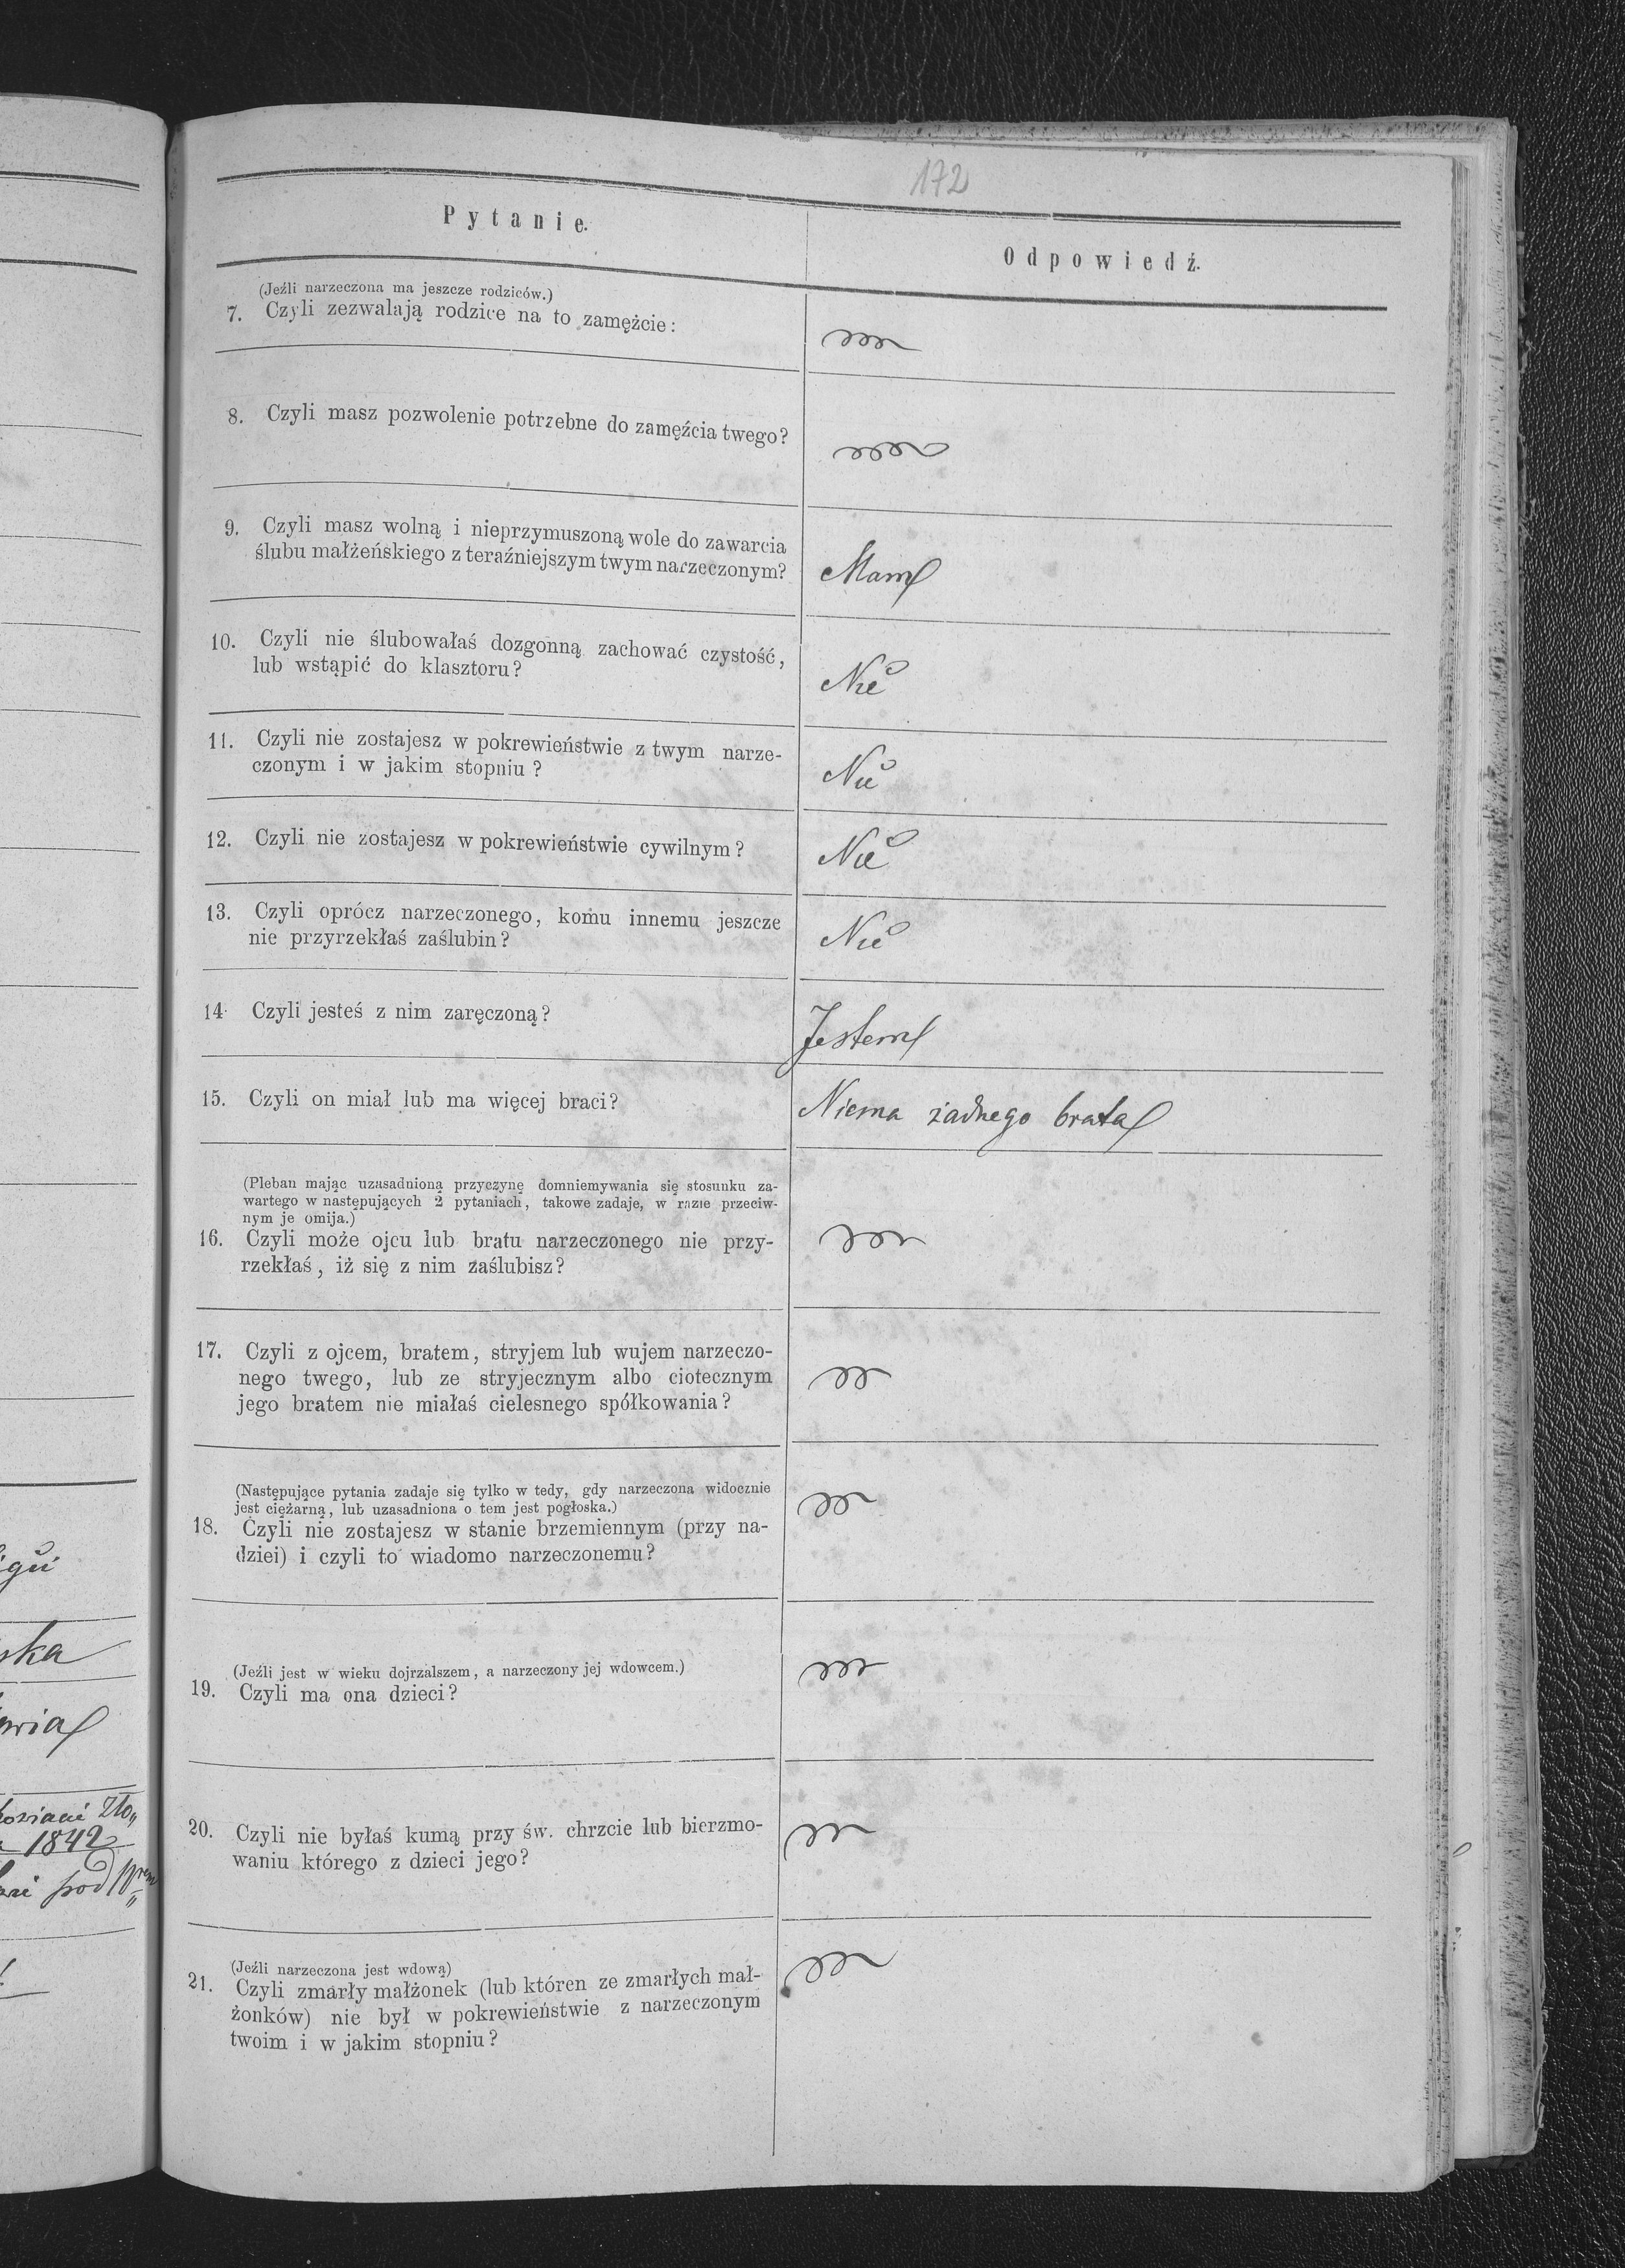 172
Pytanie.
Odpowiedź.
(Jeźli narzeczona ma jeszcze rodziców.)
7. Czyli zezwalają rodzice na to zamężcie:
8. Czyli masz pozwolenie potrzebne do zamęźcia twego?
9. Czyli masz wolną i nieprzymuszoną wole do zawarcia
ślubu małżeńskiego z teraźniejszym twym narzeczonym?
Mam
10. Czyli nie ślubowałaś dozgonną zachować czystość,
lub wstąpić do klasztoru?
Nie
11. Czyli nie zostajesz w pokrewieństwie z twym narze-
czonym i w jakim stopniu?
Nie
12. Czyli nie zostajesz w pokrewieństwie cywilnym?
Nie
13. Czyli oprócz narzeczonego, komu innemu jeszcze
nie przyrzekłaś zaślubin?
Nie
14. Czyli jesteś z nim zaręczoną?
Jestem
15. Czyli on miał lub ma więcej braci?
Niema żadnego brata
(Pleban mając uzasadnioną przyczynę domniemywania się stosunku za-
wartego w następujących 2 pytaniach, takowe zadaje, w razie przeciw-
nym je omija.)
16. Czyli może ojcu lub bratu narzeczonego nie przy-
rzekłaś, iż się z nim zaślubisz?
17. Czyli z ojcem, bratem, stryjem lub wujem narzeczo-
nego twego, lub ze stryjecznym albo ciotecznym
jego bratem nie miałaś cielesnego spółkowania?
(Następujące pytania zadaje się tylko w tedy, gdy narzeczona widocznie
jest ciężarną, lub uzasadniona o tem jest pogłoska.)
18. Czyli nie zostajesz w stanie brzemiennym (przy na-
dziei) i czyli to wiadomo narzeczonemu?
(Jeźli jest w wieku dojrzalszem, a narzeczony jej wdowcem.)
19. Czyli ma ona dzieci?
20. Czyli nie byłaś kumą przy św. chrzcie lub bierzmo-
waniu którego z dzieci jego?
(Jeźli narzeczona jest wdową)
21. Czyli zmarły małżonek (lub któren ze zmarłych mał-
żonków) nie był w pokrewieństwie z narzeczonym
twoim i w jakim stopniu?
ska
1842
pod